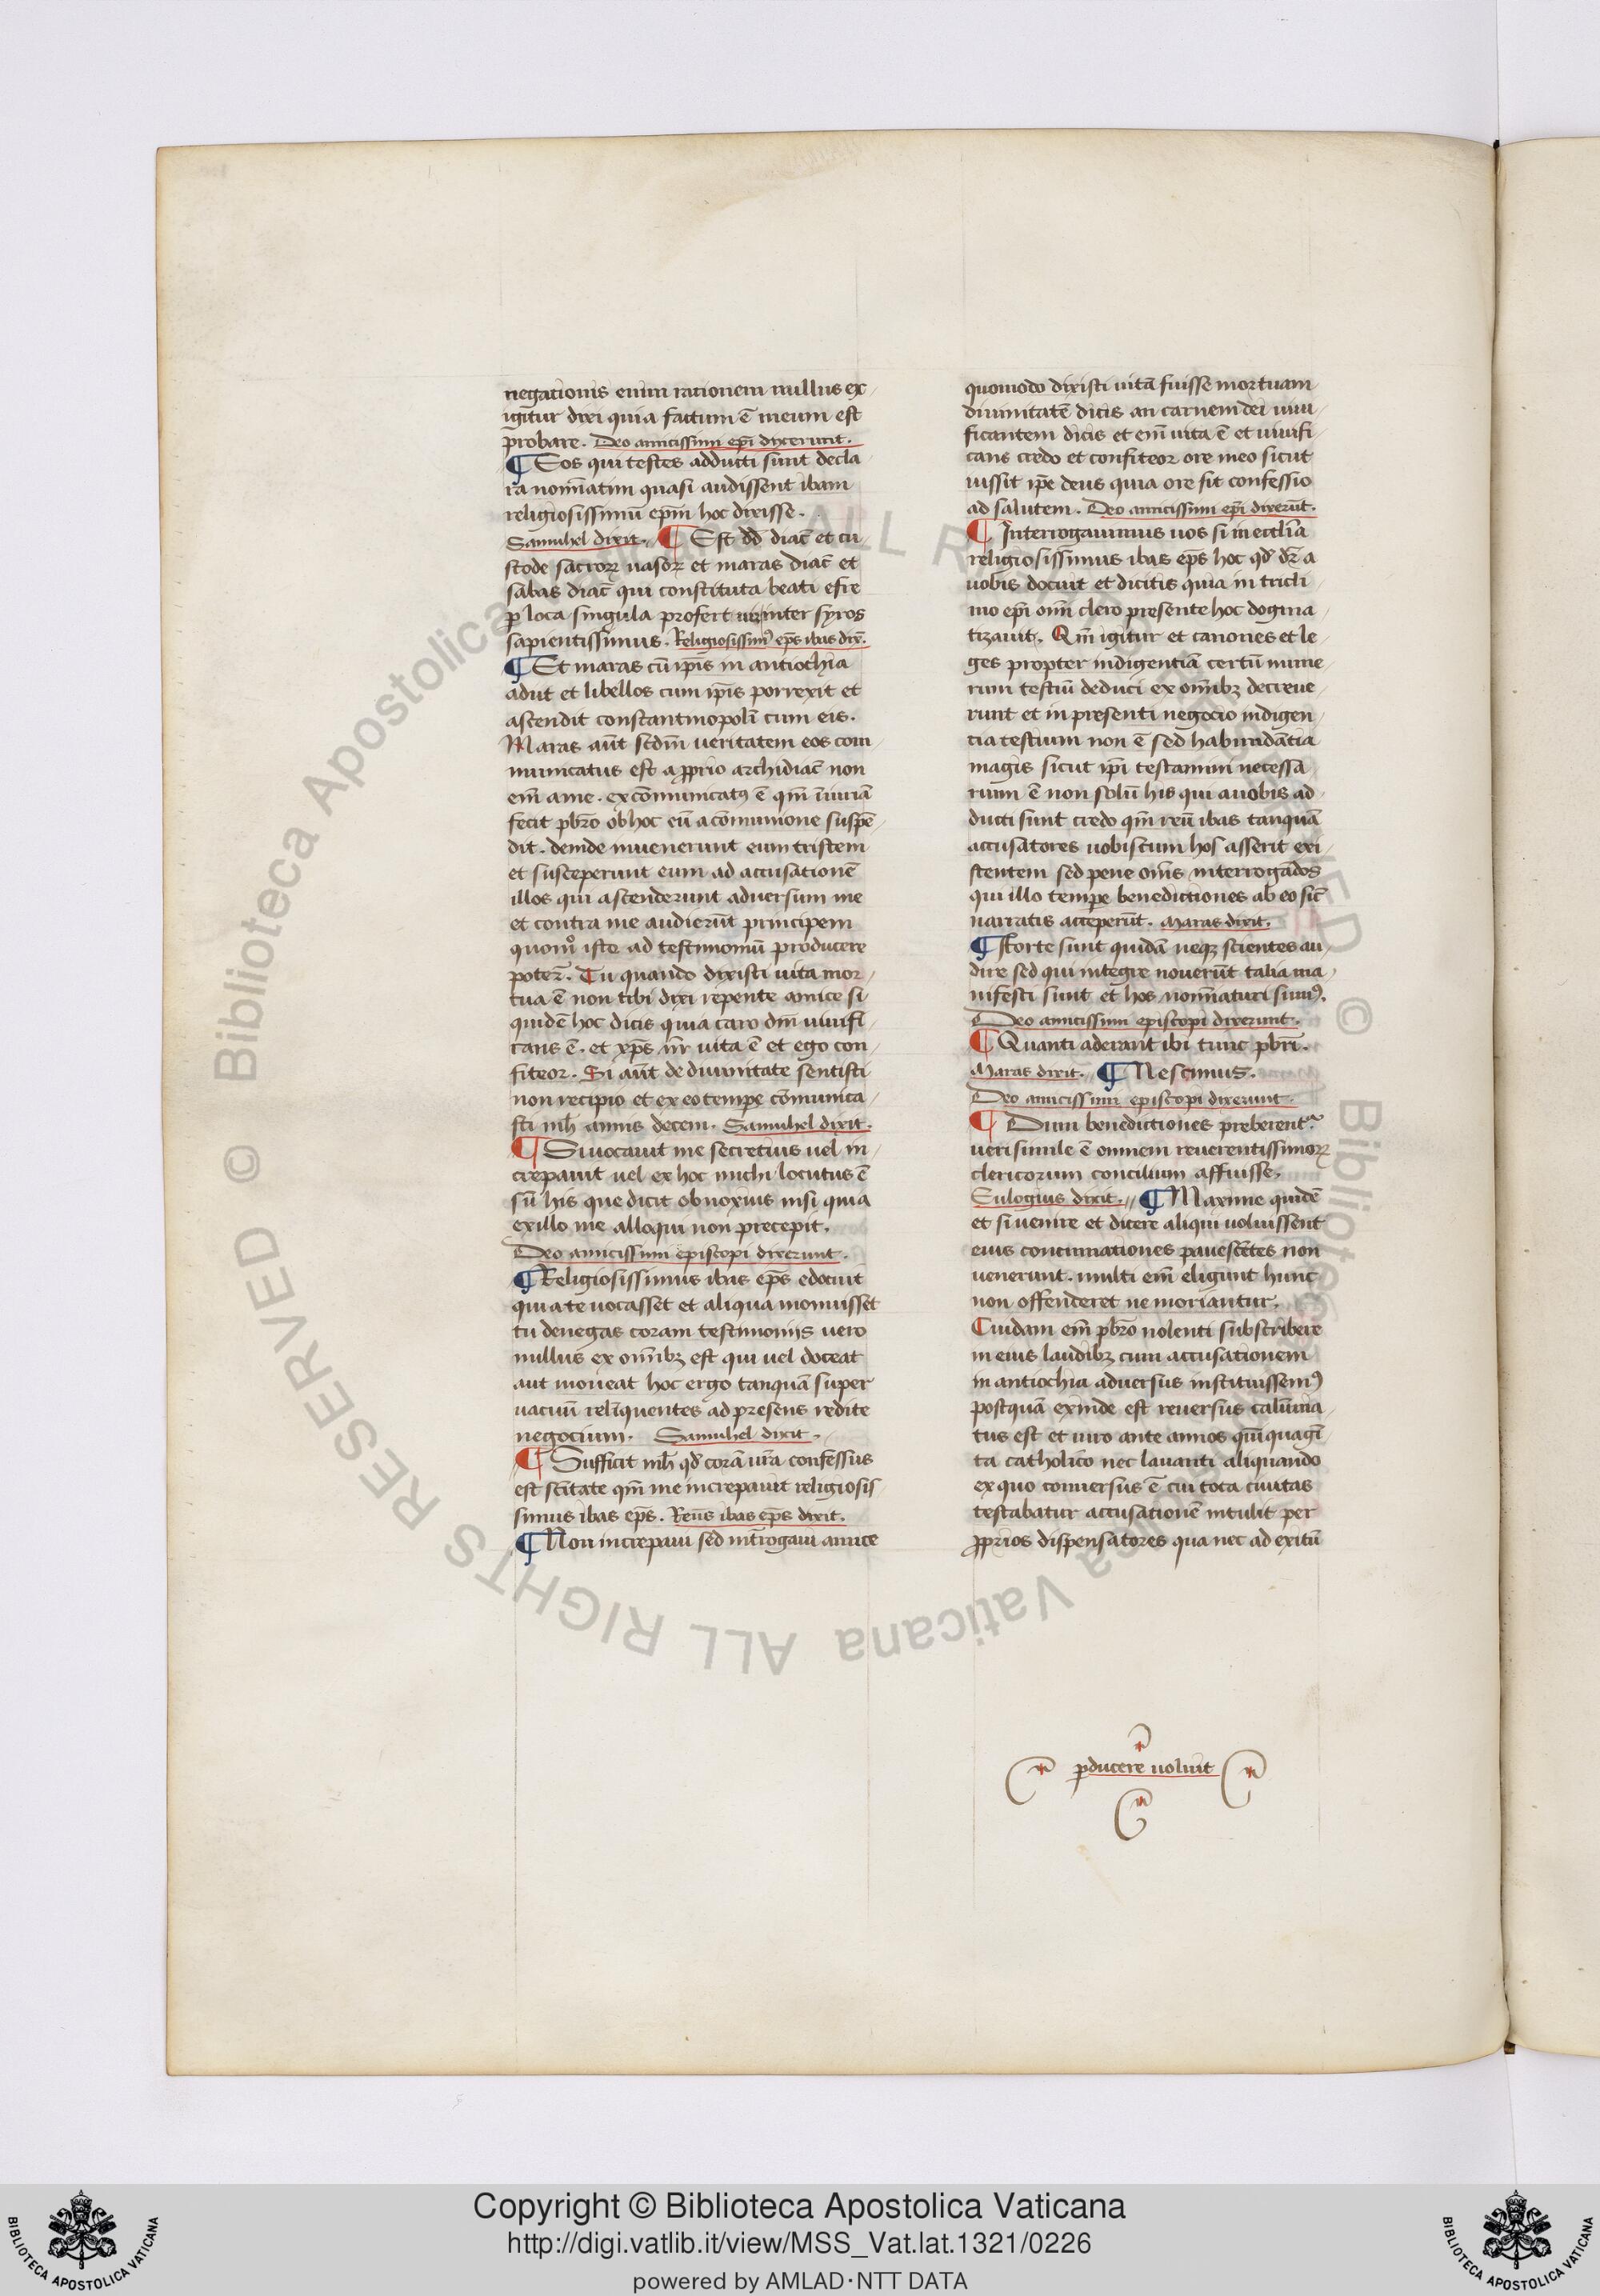 negationis enim rationem nullus ex
igitur dixi quia factum ē meum est
probare. Deo amicissimi epi̅ dyxerunt.
¶ Eos qui testes adducti sunt decla
ra nom̅natim quasi audissent ibam
religiosissimū epm̅ hoc dixisse.
Samuhel dixit. ¶ Est dd̅ diac̅ et cu
stode sacrorꝝ uasorꝝ et maras diac̅ et
sabas diac̅ qui constituta beati efre
ꝑ loca singula profert inter syros
sapientissimus. Religiosissim᷒ ep̅s ibas dix̅.
¶ Et maras cū ip̅is in antiochia
adiit et libellos cum ip̅is porrexit et
ascendit constantinopolī cum eis.
Maras aūt scdm̅ ueritatem eos com
municatus est a ꝓprio archidiac̅ non
em̅ a me. excōmunicat᷒ ē qm̅ iniuriā
fecit pbr̅o ob hoc eū a cōmunione suspē
dit. deinde inuenerunt eum tristem
et susceperunt eum ad accusationē
illos qui ascenderunt aduersum me
et contra me audierūt principem
quom̊ iste ad testimoniū producere
poter̅. Tu quando dixisti uita mor
tua ē non tibi dixi repente amice si
quidē hoc dicis quia caro dn̅i uiuifi
cans ē. et xp̅s nr̅ uita ē et ego con
fiteor. Si aūt de diuinitate sentisti
non recipio et ex eo tempe cōmunica
sti mh̅ annis decem. Samuhel dixit.
¶ Si uocauit me secretius uel in
crepauit uel ex hoc michi locutus ē
sū his que dicit obnoxius nisi quia
ex illo me alloqui non precepit.
Deo amicissimi episcopi dixerunt.
¶ Religiosissimus ibas ep̅s edocuit
quia te uocasset et aliqua monuisset
tu denegas coram testimonijs uero
nullus ex om̅ibꝫ est qui uel doceat
aut moueat hoc ergo tanquā super
uacuū relīquentes ad presens redite
negocium. Samuhel dixit.
¶ Sufficit mh̅ qd̅ corā ur̅a confessus
est sc̅itate qm̅ me increpauit religiosis
simus ibas ep̅s. Reus̅ ibas ep̅s dixit.
¶ Non increpaui sed int̅rogaui amice
quomodo dixisti uitā fuisse mortuam
diuinitatē dicis an carnem dei uiui
ficantem dicis et em̅ uita ē et uiuifi
cans credo et confiteor ore meo sicut
iussit ip̅e deus quia ore fit confessio
ad salutem. Deo amicissimi epi̅ dixerūt.
¶ Interrogauimus uos si in eccli̅a
religiosissimus ibas ep̅s hoc qd̅ dr̅ a
uobis docuit et dicitis quia in tricli
nio epi̅ om̅i clero presente hoc dogma
tizauit. Qm̅ igitur et canones et le
ges propter indigentiā certū nume
rum testiū deduci ex om̅ibꝫ decreue
runt et in presenti negocio indigen
tia testium non ē sed habundātia
magis sicut ip̅i testamini necessa
rium ē non solū his qui a uobis ad
ducti sunt credo qm̅ reū ibas tanquā
accusatores uobiscum hos asserit exi
stentem sed pene om̅s interrogādos
qui illo tempe benedictiones ab eo sic̅
narratis acceperūt. Maras dixit.
¶ Forte sunt quidā neqꝫ scientes au
dire sed qui integre nouerūt talia ma
nifesti sunt et hos nom̅naturi sum᷒.
Deo amicissimi episcopi dixerunt.
¶ Quanti aderant ibi tunc pbr̅i.
Maras dixit. ¶ Nescimus.
Deo amicissimi episcopi dixerunt.
¶ Dum benedictiones preberent᷑
uerisimile ē omnem reuerentissimorꝝ
clericorum concilium affuisse.
Eulogius dixit. ¶ Maxime quidē
et si uenire et dicere aliqui uoluissent
eius concinnationes pauesc̅tes non
uenerunt. multi em̅ eligunt hunc
non offenderet ne moriantur.
Cuidam em̅ pbr̅o nolenti subscribere
in eius laudibꝫ cum accusationem
in antiochia aduersus instituissem᷒
postquā exinde est reuersus calūnia
tus est et uiro ante annos quīquagī
ta catholico nec lauanti aliquando
ex quo conuersus ē cui tota ciuitas
testabatur accusationē intulit per
ꝓprios dispensatores qua nec ad exitū
ꝑducere uoluit
© Biblioteca Apostolica Vaticana ALL RIGHTS RESERVED
Copyright © Biblioteca Apostolica Vaticana
http://digi.vatlib.it/view/MSS_Vat.lat.1321/0226
powered by AMLAD·NTT DATA
BIBLIOTECA APOSTOLICA VATICANA
BIBLIOTECA APOSTOLICA VATICANA